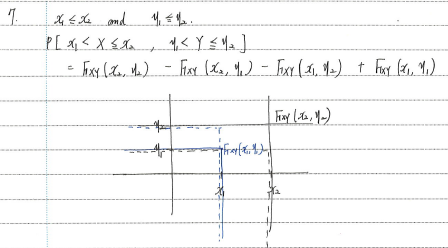 7. x₁ ≤ x₂ and y₁ ≤ y₂.
P[ x₁ < X ≤ x₂ , y₁ < Y ≤ y₂ ]
= F_XY(x₂, y₂) - F_XY(x₂, y₁) - F_XY(x₁, y₂) + F_XY(x₁, y₁)
F_XY(x₂, y₂)
y₂
y₁ F_XY(x₁, y₁)
x₁ x₂